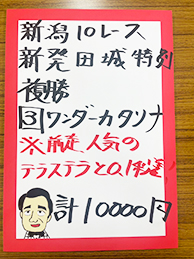 新潟10レース
新発田城特別
複勝
3ワンダーカタリナ
※前走人気の
テラステラと0.1秒差!
計10000円